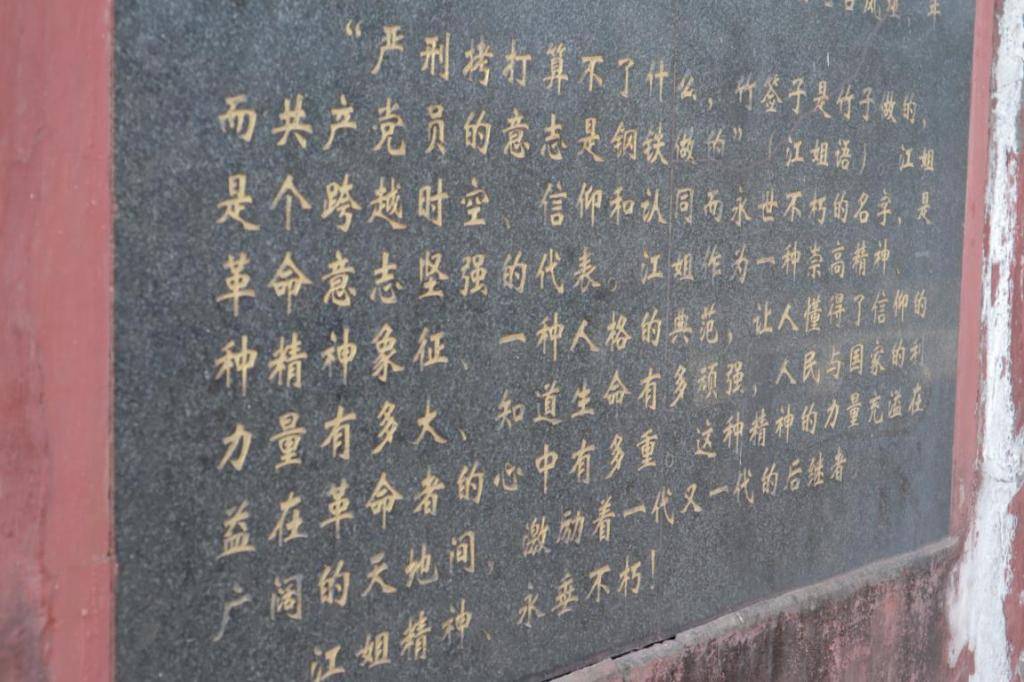 “严刑拷打算不了什么，竹签子是竹子做的，
而共产党员的意志是钢铁做的”（江姐语） 江姐
是个跨越时空、信仰和认同而永世不朽的名字，是
革命意志坚强的代表。江姐作为一种崇高精神、一
种精神象征、一种人格的典范，让人懂得了信仰的
力量有多大、知道生命有多顽强，人民与国家的利
益在革命者的心中有多重。这种精神的力量充溢在
广阔的天地间，激励着一代又一代的后继者
江姐精神、永垂不朽！